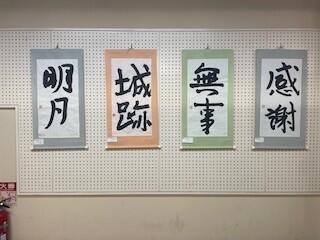 明月
城跡
無事
感謝
火器